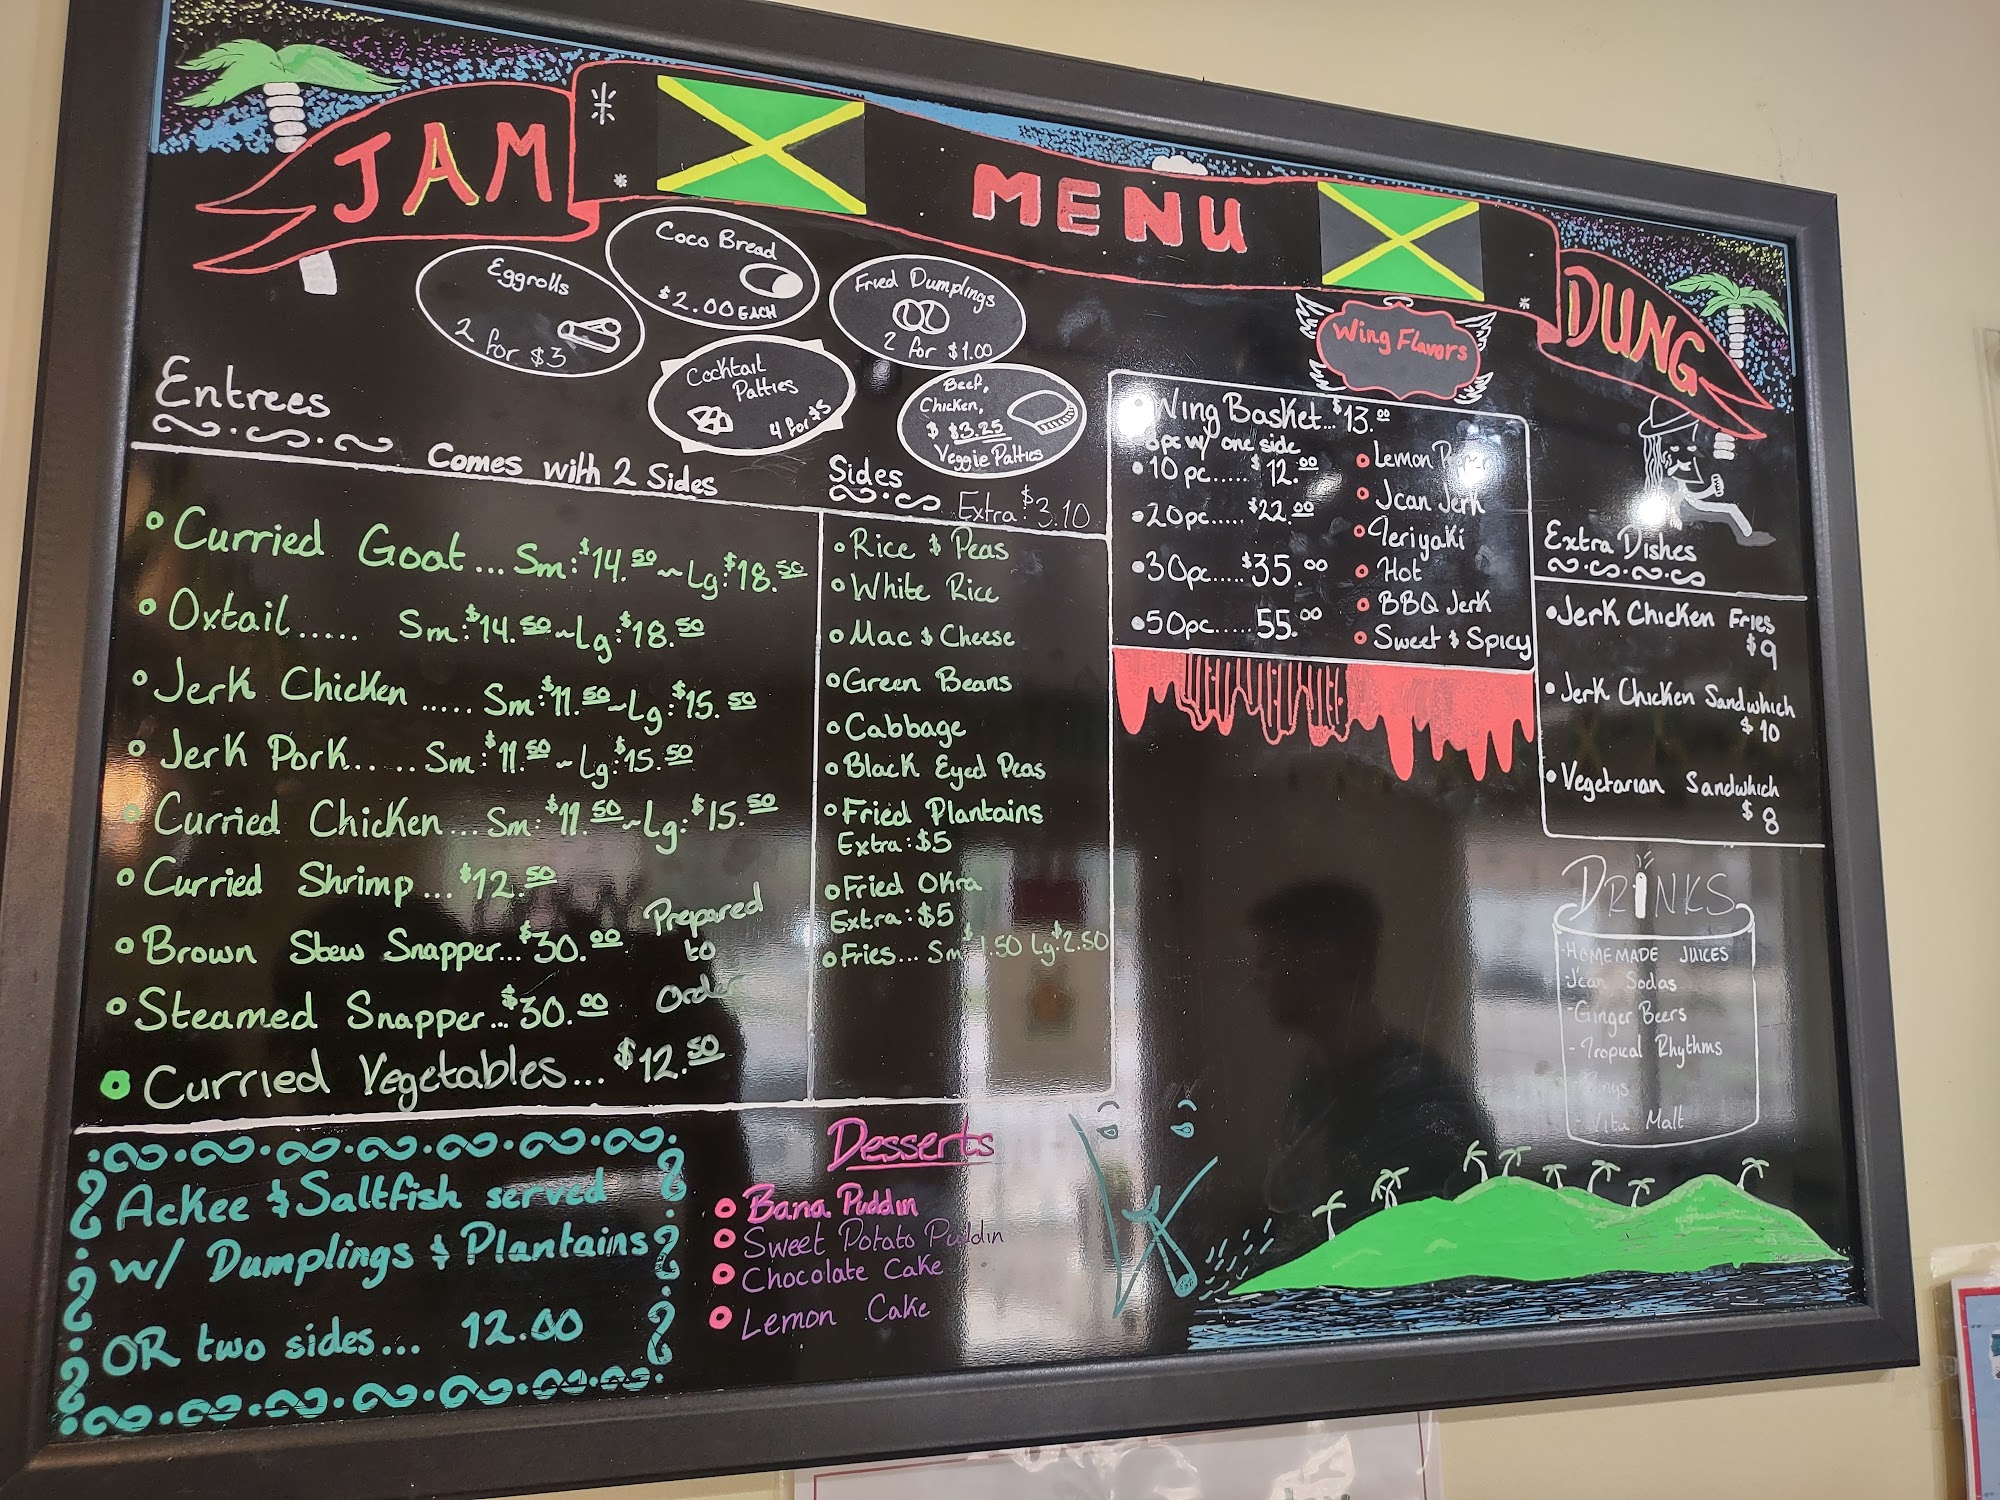 JAM MENU DUNG
Eggrolls
2 for $3
Coco Bread
$2.00 EACH
Fried Dumplings
2 for $1.00
Cocktail
Patties
4 for $5
Beef,
Chicken,
$ $3.25
Veggie Patties
Entrees
Comes with 2 Sides
Curried Goat... Sm:$14.50~Lg:$18.50
Oxtail..... Sm:$14.50~Lg:$18.50
Jerk Chicken ..... Sm:$11.50~Lg:$15.50
Jerk Pork..... Sm:$11.50~Lg:$15.50
Curried Chicken... Sm:$11.50~Lg:$15.50
Curried Shrimp... $12.50
Brown Stew Snapper...$30.00
Steamed Snapper...$30.00
Prepared
to
Order
Curried Vegetables... $12.50
Sides
Extra:$3.10
Rice & Peas
White Rice
Mac & Cheese
Green Beans
Cabbage
Black Eyed Peas
Fried Plantains
Extra:$5
Fried Okra
Extra:$5
Fries... Sm $1.50 Lg:$2.50
Wing Flavors
Wing Basket...$13.00
pc w/ one side
10pc..... $12.00
20pc..... $22.00
30pc..... $35.00
50pc..... 55.00
Lemon
Jcan Jerk
Teriyaki
Hot
BBQ Jerk
Sweet & Spicy
Extra Dishes
Jerk Chicken Fries
$9
Jerk Chicken Sandwhich
$10
Vegetarian Sandwhich
$8
DRINKS
-HOMEMADE JUICES
-J'can Sodas
-Ginger Beers
-Tropical Rhythms
-Vita Malt
Ackee & Saltfish served
w/ Dumplings & Plantains
OR two sides... 12.00
Desserts
Bana Puddin
Sweet Potato Puddin
Chocolate Cake
Lemon Cake